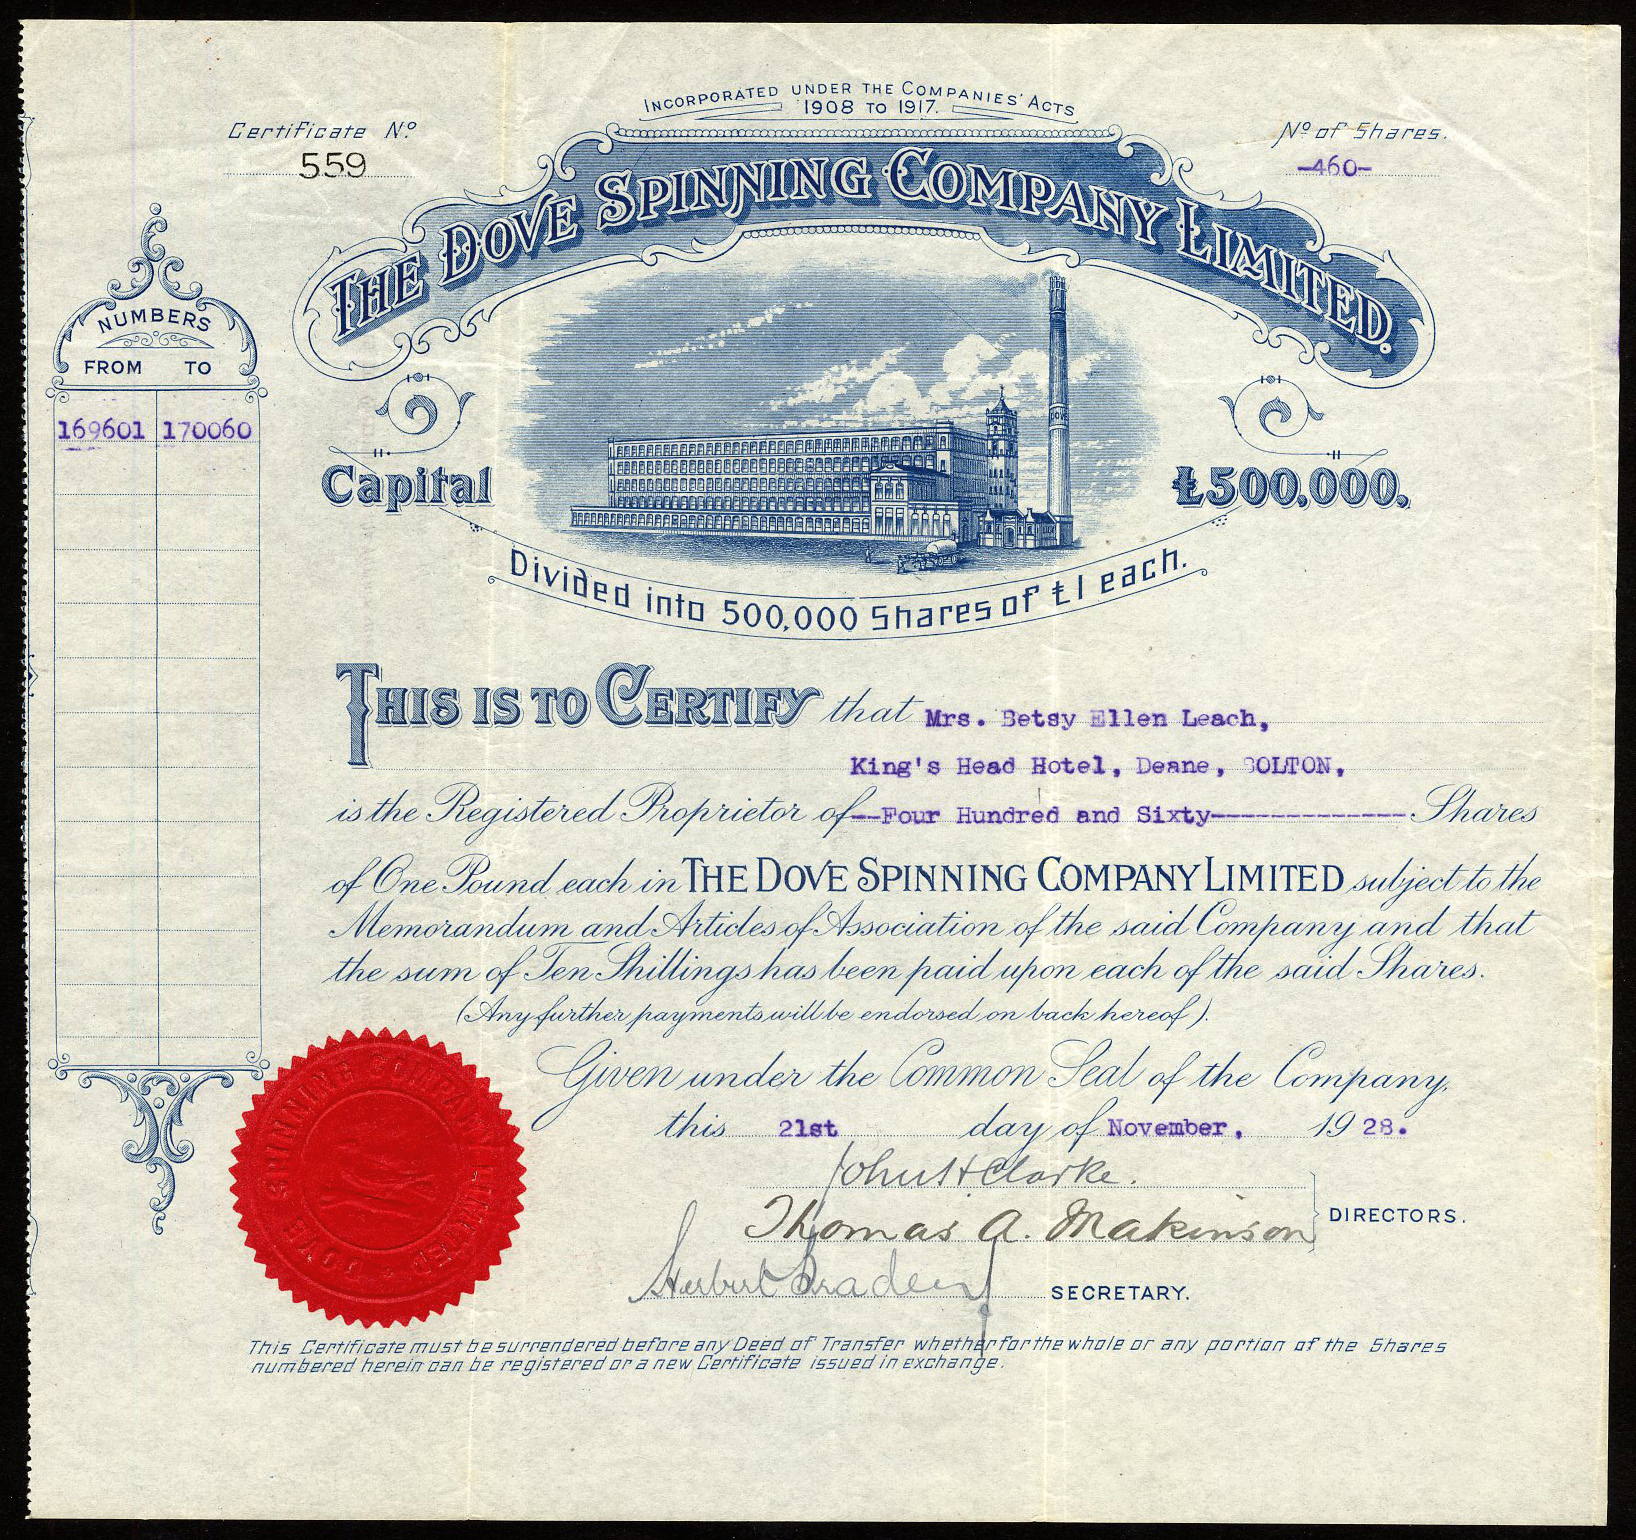 INCORPORATED UNDER THE COMPANIES' ACTS
1908 TO 1917.
Certificate No.
559
No. of Shares.
-460-
THE DOVE SPINNING COMPANY LIMITED.
NUMBERS
FROM TO
169601 170060
DOVE
Capital £500,000,
Divided into 500,000 Shares of £1 each.
THIS IS TO CERTIFY that Mrs. Betsy Ellen Leach,
King's Head Hotel, Deane, BOLTON,
is the Registered Proprietor of--Four Hundred and Sixty------------- Shares
of One Pound each in THE DOVE SPINNING COMPANY LIMITED subject to the
Memorandum and Articles of Association of the said Company and that
the sum of Ten Shillings has been paid upon each of the said Shares.
(Any further payments will be endorsed on back hereof).
Given under the Common Seal of the Company,
this 21st day of November, 1928.
John H Clarke.
Thomas A. Makinson
DIRECTORS.
Herbert
SECRETARY.
DOVE SPINNING COMPANY LIMITED
This Certificate must be surrendered before any Deed of Transfer whether for the whole or any portion of the Shares
numbered herein can be registered or a new Certificate issued in exchange.